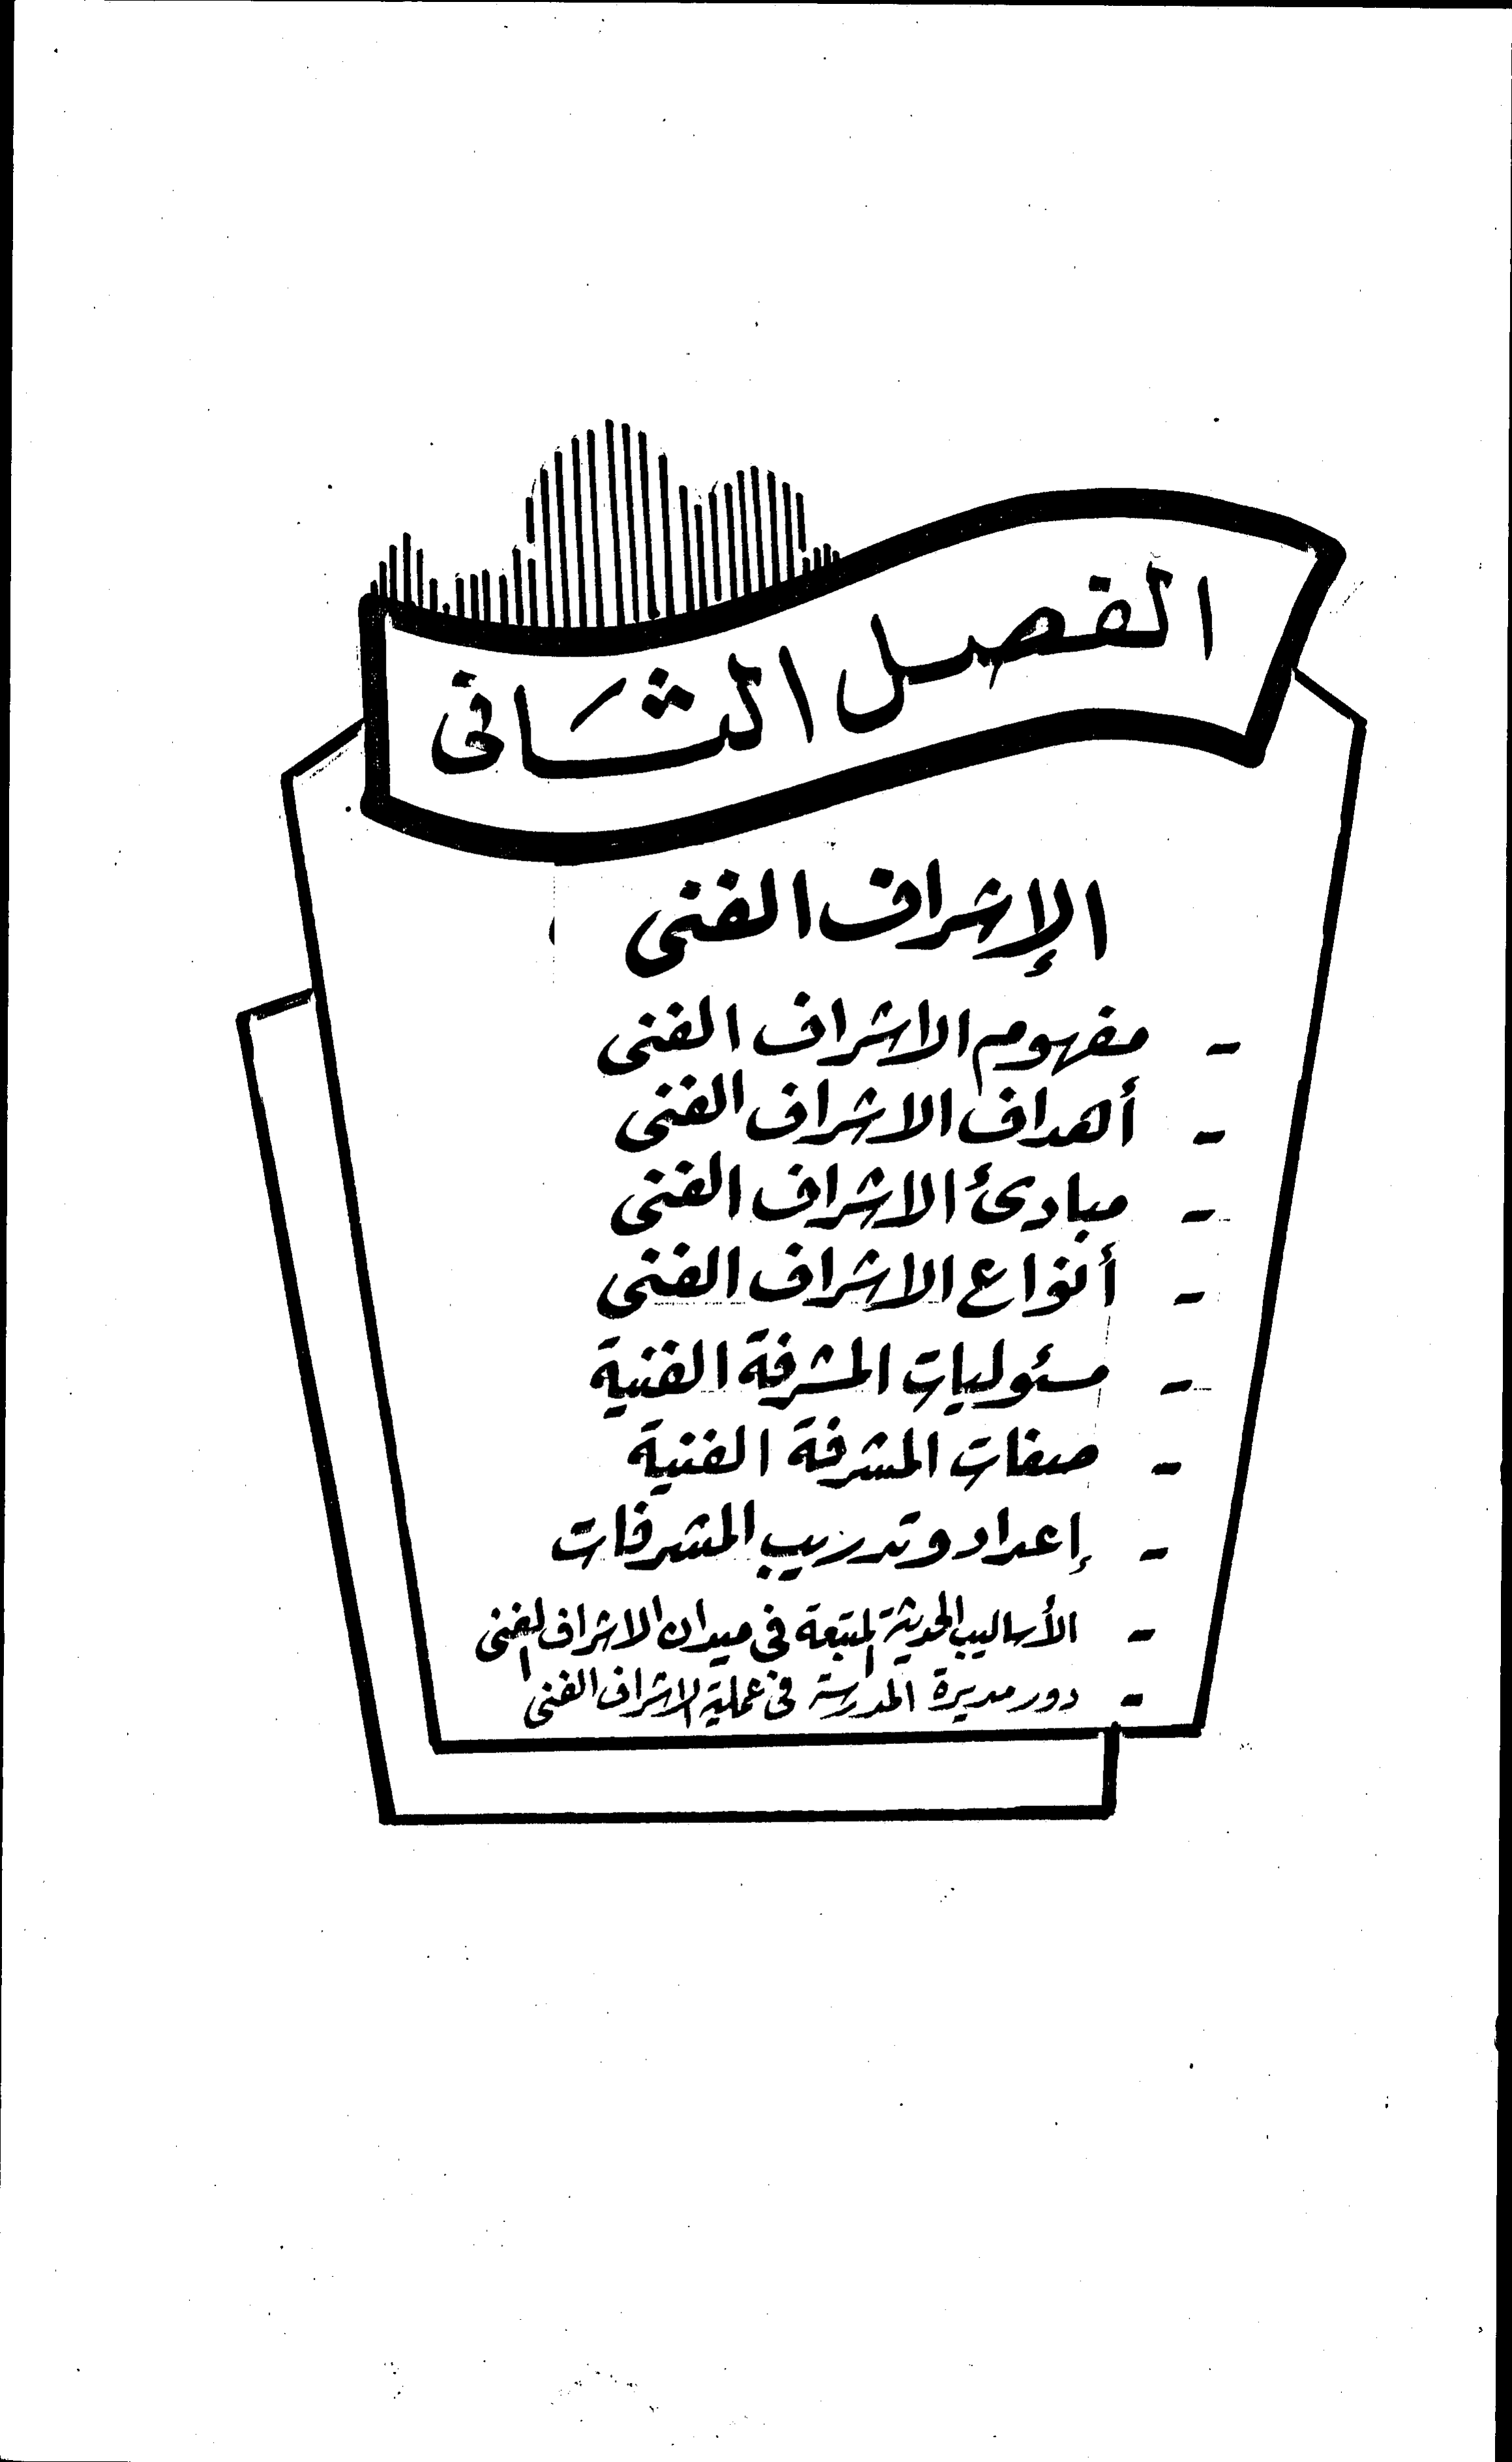 الفصل الثانى
الإشراف الفنى
- مفهوم الاشراف الفنى
- أهداف الاشراف الفنى
- مبادئ الاشراف الفنى
- أنواع الاشراف الفنى
- مسئوليات المشرفة الفنية
- صفات المشرفة الفنية
- إعداد وتدريب المشرفات
- الأساليب الحديثة المتبعة فى ميدان الاشراف الفنى
- دور مديرة المدرسة فى عملية الاشراف الفنى